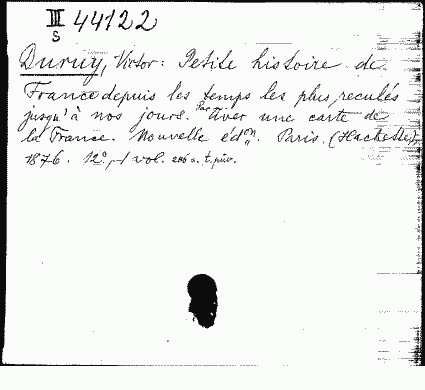 III 44122
S
Duruy, Victor: Petite histoire de
France depuis les temps les plus reculés
jusqu'à nos jours. Avec une carte de
la France. Nouvelle éd. Paris. (Hachette),
1876. 12°. 1 vol.